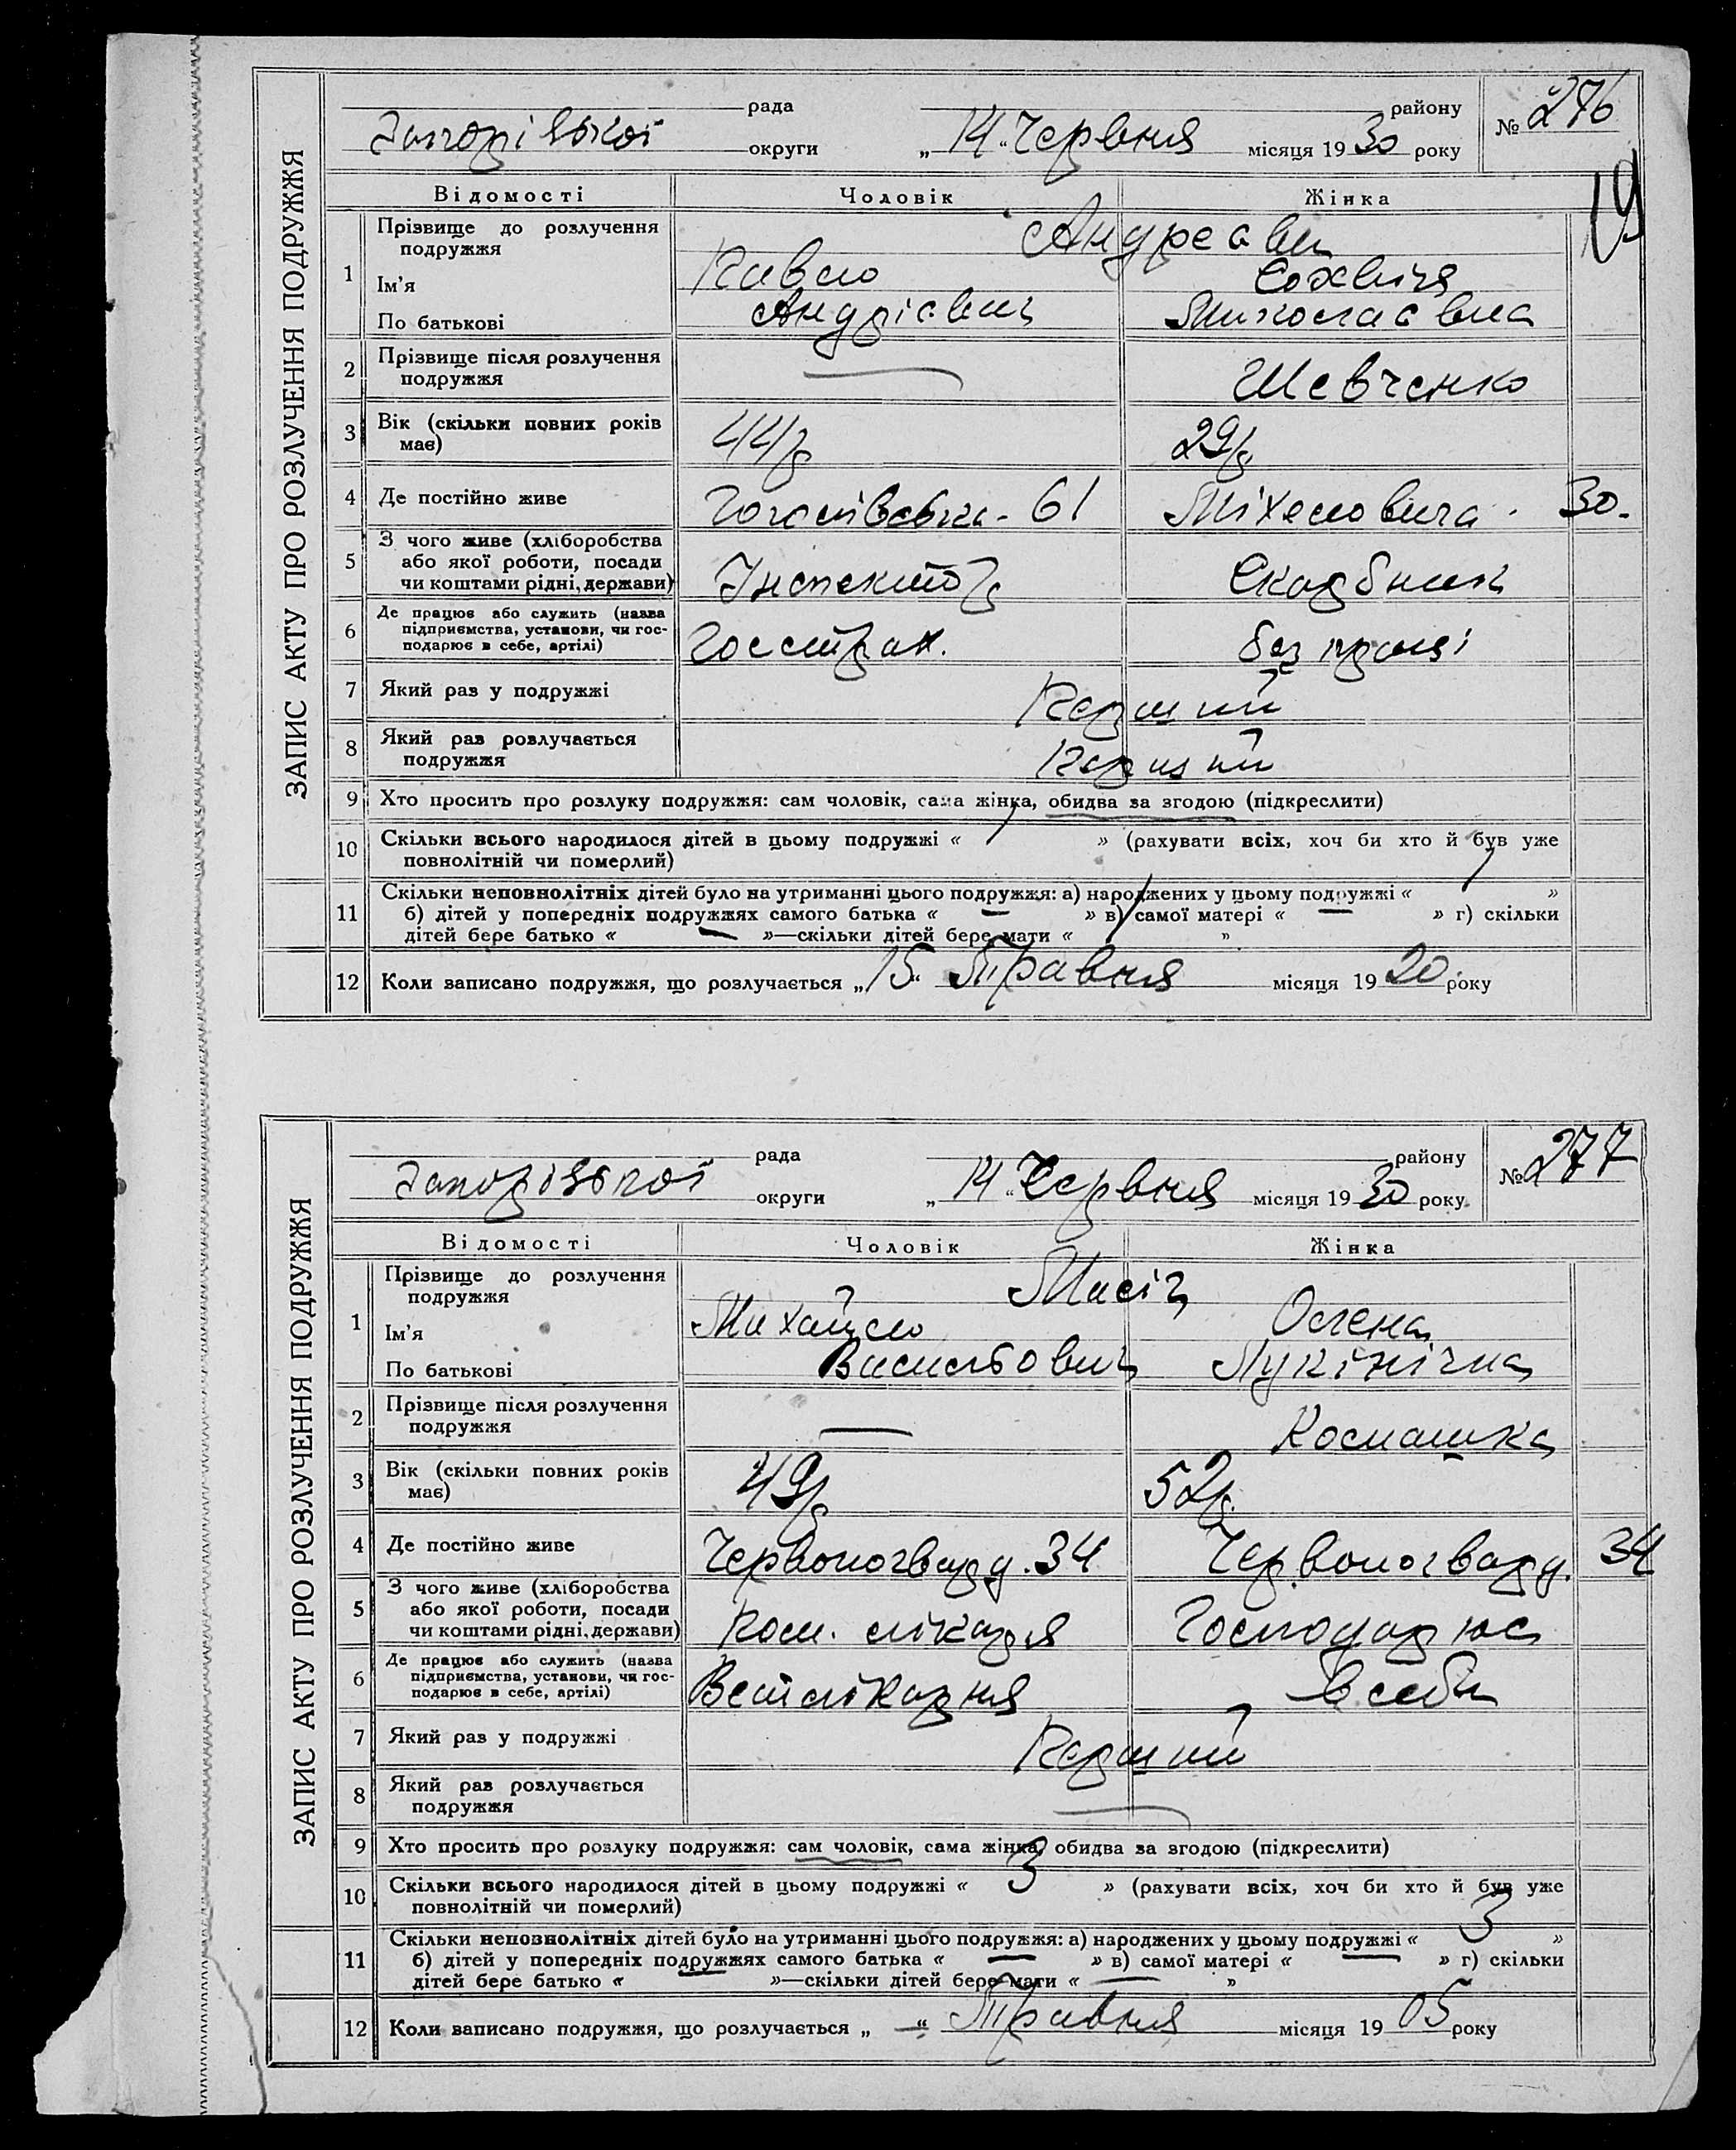 ЗАПИС АКТУ ПРО РОЗЛУЧЕННЯ ПОДРУЖЖЯ
рада району № 276
округи „14“ Червня місяця 1930 року
19
Відомості Чоловік Жінка
1 Прізвище до розлучення подружжя
Ім'я Павло
По батькові Андрієвич Миколаєвна
2 Прізвище після розлучення подружжя — Шевченко
3 Вік (скільки повних років має) 44 р 29 р.
4 Де постійно живе Гоголівська - 61 30.
5 З чого живе (хліборобства або якої роботи, посади чи коштами рідні, держави) Інспектор
6 Де працює або служить (назва підприємства, установи, чи господарює в себе, артілі) Госстрах. без праці
7 Який раз у подружжі Перший
8 Який раз розлучається подружжя Перший
9 Хто просить про розлуку подружжя: сам чоловік, сама жінка, обидва за згодою (підкреслити)
10 Скільки всього народилося дітей в цьому подружжі « 1 » (рахувати всіх, хоч би хто й був уже
повнолітній чи померлий)
11 Скільки неповнолітніх дітей було на утриманні цього подружжя: а) народжених у цьому подружжі « 1 »
б) дітей у попередніх подружжях самого батька « — » в) самої матері « — » г) скільки
дітей бере батько « — »—скільки дітей бере мати « 1 »
12 Коли записано подружжя, що розлучається „15“ Травня місяця 1920 року
ЗАПИС АКТУ ПРО РОЗЛУЧЕННЯ ПОДРУЖЖЯ
рада району № 277
округи „14“ Червня місяця 1930 року
Відомості Чоловік Жінка
1 Прізвище до розлучення подружжя
Ім'я Михайло Олена
По батькові Васильович Лукінічна
2 Прізвище після розлучення подружжя —
3 Вік (скільки повних років має) 49 р 52 р.
4 Де постійно живе Червоногвард. 34 Червоногвард. 34
5 З чого живе (хліборобства або якої роботи, посади чи коштами рідні, держави) Пом. лікаря Господарює
6 Де працює або служить (назва підприємства, установи, чи господарює в себе, артілі) Ветлікарня В себе
7 Який раз у подружжі Перший
8 Який раз розлучається подружжя —
9 Хто просить про розлуку подружжя: сам чоловік, сама жінка, обидва за згодою (підкреслити)
10 Скільки всього народилося дітей в цьому подружжі « 3 » (рахувати всіх, хоч би хто й був уже
повнолітній чи померлий)
11 Скільки неповнолітніх дітей було на утриманні цього подружжя: а) народжених у цьому подружжі « 3 »
б) дітей у попередніх подружжях самого батька « — » в) самої матері « — » г) скільки
дітей бере батько « — »—скільки дітей бере мати « — »
12 Коли записано подружжя, що розлучається „ — “ Травня місяця 1905 року